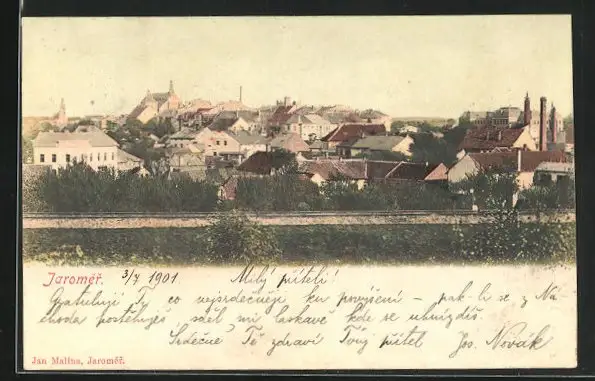 Jaroměř. 3/7 1901 Milý příteli!
Gratuluji Ty co nejsrdečněji ku povýšení – pak li se z Ná
choda postěhuješ sděl mi laskavě kde se uhnízdíš.
Srdečně Tě zdraví Tvůj přítel Jos. Novák
Jan Malina, Jaroměř.